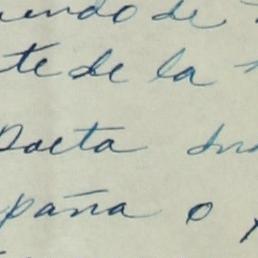 endo de
te de la
Poeta
paña o